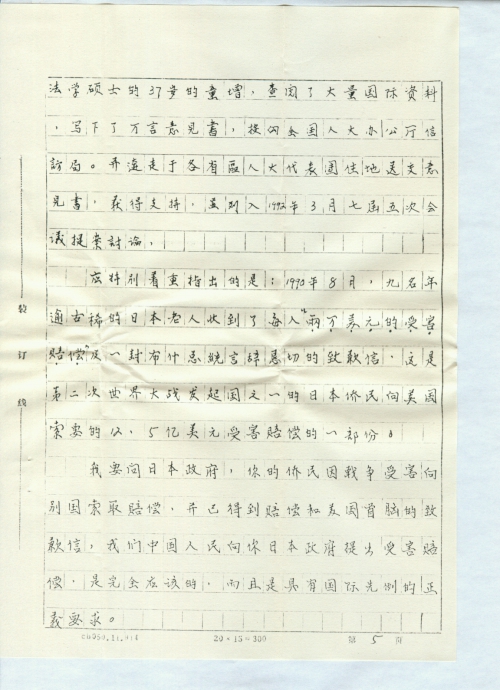 法学硕士的37岁的童增，查阅了大量国际资料
，写下了万言意見書，提网全国人大办公厅信
訪局。并遍走于各省區人大代表团住地送交意
見書，获得支持，並列入1992年3月七届五次会
议提案討论。
应特别着重指出的是：1990年8月，九名年
逾古稀的日本老人收到了每人“兩万美元的受害
賠偿”及一封布什总統言辞恳切的致歉信。这是
第二次世界大战发起国之一的日本侨民向美国
索要的12、5亿美元受害賠偿的一部份。
我要问日本政府，你的侨民因戰争受害向
别国索取賠偿，并已得到賠偿和美国首腦的致
歉信，我们中国人民向你日本政府提出受害賠
偿，是完全应该的，而且是具有国际先例的正
義要求。
装订线
20×15=300
第5页